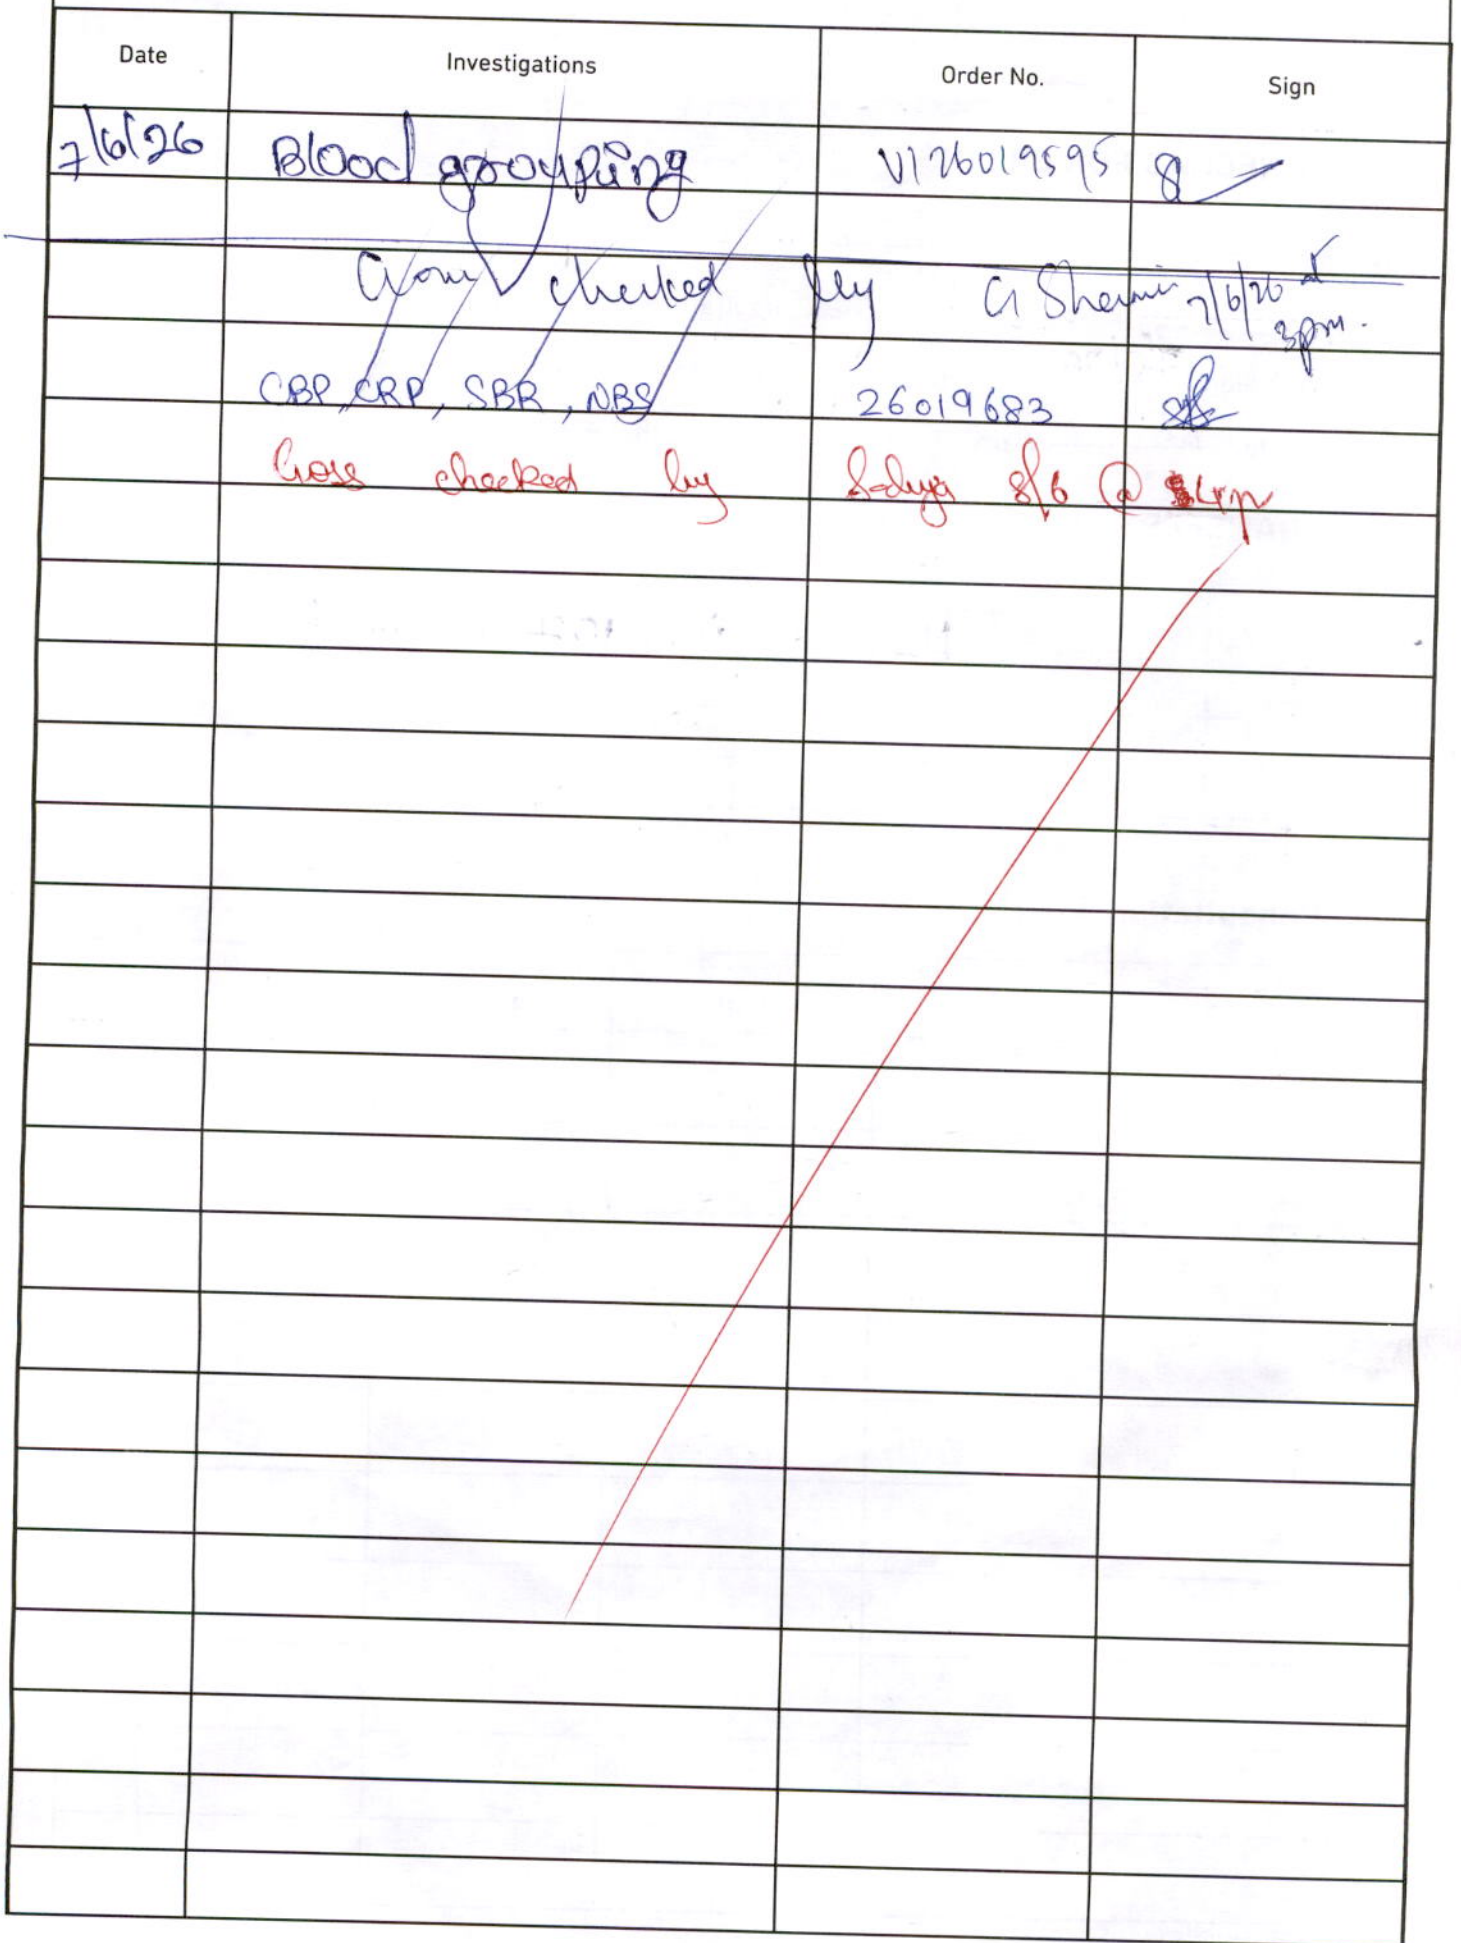 Date Investigations Order No. Sign
7/6/26 Blood grouping VI26019595
Cross checked by G Sharmi 7/6/26 at
3pm.
CBP, CRP, SBR, NBS 26019683
Cross checked by 8/6 @